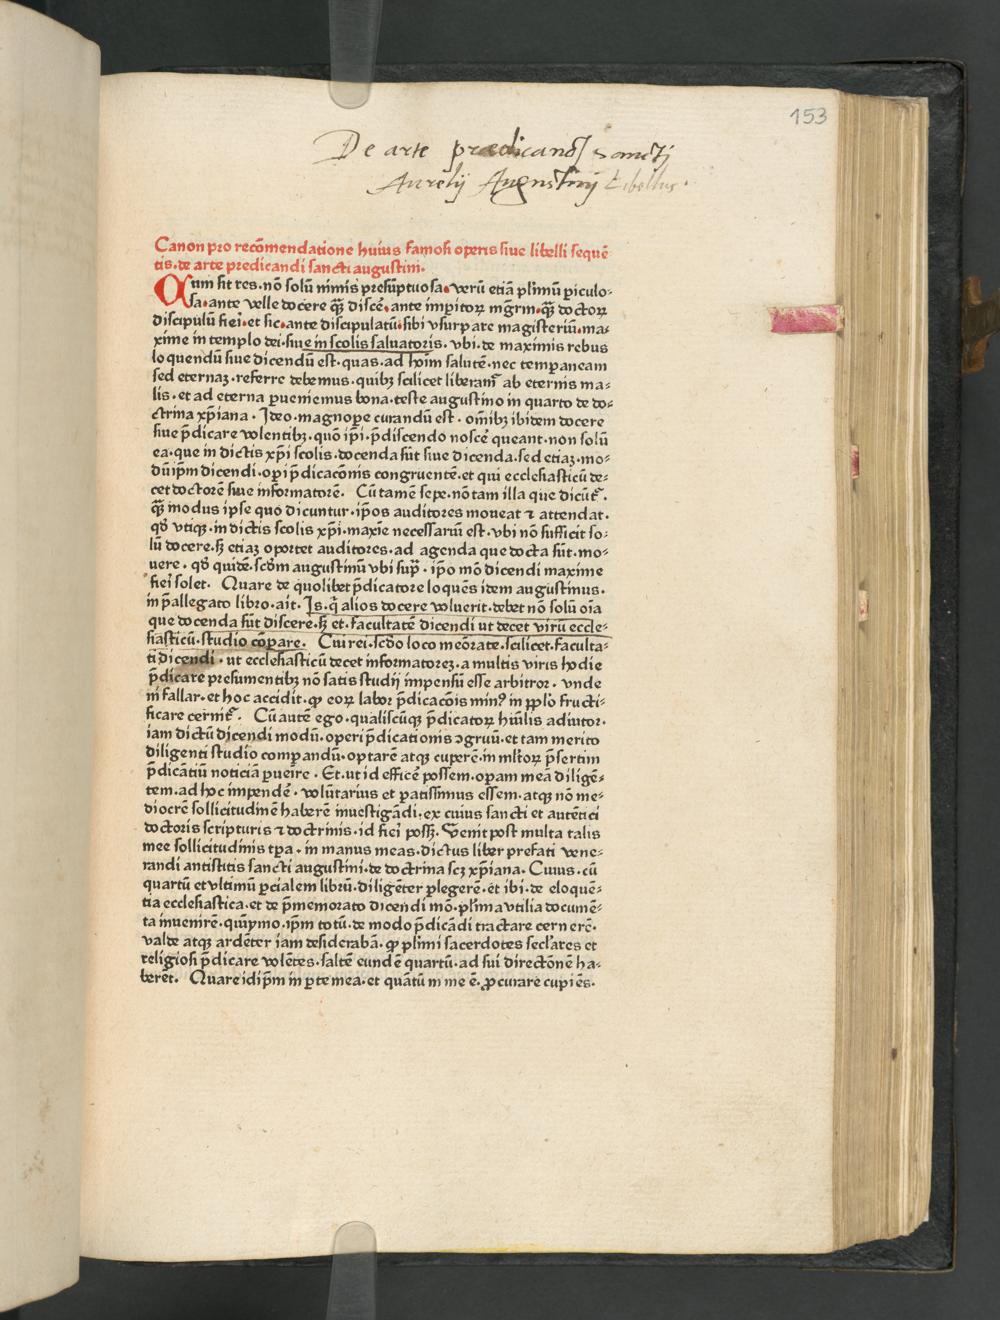 153
De arte prædicandj sanctj
Aurelij Augustinj Libellus.
Canon pro recōmendatione huius famosi operis siue libelli sequē
tis.de arte predicandi sancti augustini.
Cum sit res.nō solū nimis presūptuosa.verū etiā pl̄imū ꝑiculo⸗
sa.ante velle docere qȝ̄ discē.ante imꝑitoꝝ mḡrm.qȝ̄ doctoꝝ
discipulū fieī.et sic.ante discipulatū.sibi vsurpare magisteriū.ma⸗
xime in templo dei.siue in scolis saluatoris. vbi.de maximis rebus
loquendū siue dicendū est.quas.ad hoīm salutē.nec temꝑaneam
sed eternaȝ.referre debemus.quibȝ scilicet liberam̄ ab eternis ma⸗
lis.et ad eterna ꝑueniemus bona.teste augustino in quarto de do⸗
ctrina xp̄iana. Ideo.magnoꝑe curandū est. om̄ibȝ ibidem docere
siue p̄dicare volentibȝ.quō ip̄i.p̄discendo noscē queant.non solū
ea.que in dictis xp̄i scolis.docenda sūt siue dicenda.sed etiaȝ.mo⸗
dū ip̄m dicendi.oꝑi p̄dicacōnis congruentē.et qui ecclesiasticū de⸗
cet doctorē siue informatorē. Cū tamē sepe.nō tam illa que dicūt̄.
qȝ̄ modus ipse quo dicuntur.ip̄os auditores moueat ⁊ attendat.
qd̄ vtiqȝ.in dictis scolis xp̄i.maxīe necessariū est.vbi nō sufficit so⸗
lū docere.sȝ etiaȝ oportet auditores.ad agenda que docta sūt.mo⸗
uere. qd̄ quidē.scd̄m augustinū vbi sup̄. ip̄o mō dicendi maxime
fieī solet. Quare de quolibet p̄dicatore loquēs idem augustinus.
in p̄allegato libro.ait. Is.qī alios docere voluerit.debet nō solū oīa
que docenda sūt discere.sȝ et.facultatē dicendi ut decet virū eccle⸗
siasticū.studio cōꝑare. Cui rei.scd̄o loco meōrate.scilicet.faculta⸗
ti dicendi. ut ecclesiasticū decet informatoreȝ.a multis viris hodie
p̄dicare presumentibȝ nō satis studij impensū esse arbitror. vnde
ni fallar.et hoc accidit.ꝙ eoꝝ labor p̄dicacōis minꝰ in pp̄lo fructi⸗
ficare cernit̄. Cū autē ego.qualiscūqȝ p̄dicatoꝝ hūilis adiutor.
iam dictū dicendi modū.operi p̄dicationis ↄgruū.et tam merito
diligenti studio comꝑandū.optarē atqȝ cuperē.in ml̄toꝝ p̄sertim
p̄dicātiū noticiā ꝑueīre. Et.ut id efficē possem.oꝑam meā diligē⸗
tem.ad hoc impendē. volūtarius et ꝑatissimus essem.atqȝ nō me⸗
diocrē sollicitudinē haberē inuestigādi.ex cuius sancti et autētici
doctoris scripturis ⁊ doctrinis.id fieī possȝ. Venit post multa talis
mee sollicitudinis tp̄a. in manus meas.dictus liber prefati vene⸗
randi antistitis sancti augustini.de doctrina scȝ xp̄iana. Cuius.cū
quartū et vltimū ꝑcialem librū.diligēter ꝑlegerē.et ibi.de eloquē⸗
tia ecclesiastica.et de p̄memorato dicendi mō.pl̄ima vtilia documē⸗
ta inuenirē.quīymo.ip̄m totū.de modo p̄dicādi tractare cernerē.
valde atqȝ ardēter iam desiderabā.ꝙ pl̄imi sacerdotes secl̄ares et
religiosi p̄dicare volētes.saltē eundē quartū.ad sui directōnē ha⸗
berēt. Quare id ip̄m in ꝑte mea.et quātū in me ē.ꝓcurare cupiēs.